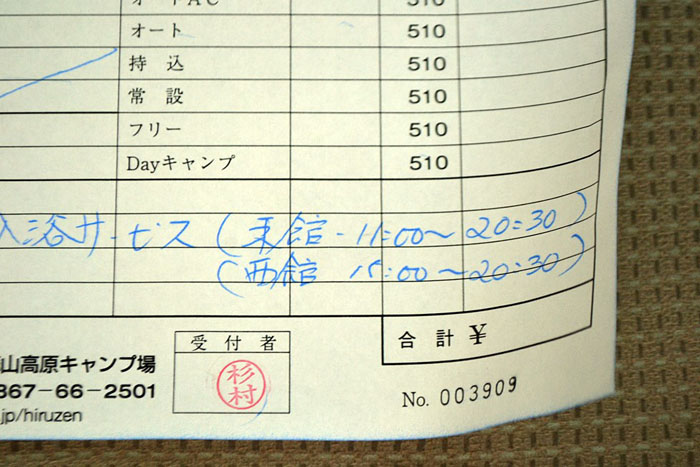 オートAC 510
オート 510
持込 510
常設 510
フリー 510
Dayキャンプ 510
入浴サービス (東館-11:00～20:30)
(西館 15:00～20:30)
合計 ¥
受付者
杉村
山高原キャンプ場
867-66-2501
.jp/hiruzen
No. 003909